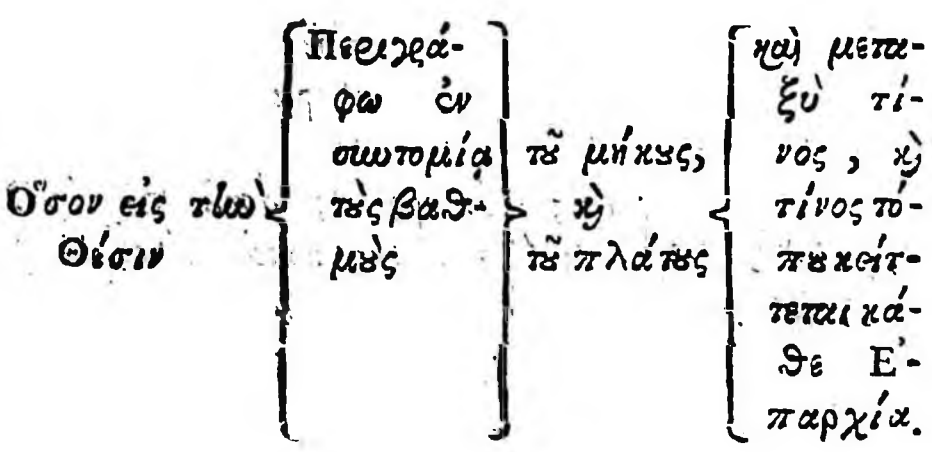 Ὅσον εἰς τὴν
Θέσιν
Περιγρά-
φω ἐν
συντομίᾳ
τοὺς βαθ-
μοὺς
τοῦ μήκους,
καὶ
τοῦ πλάτους
καὶ μετα-
ξὺ τί-
νος, καὶ
τίνος τό-
που κείτ-
τεται κά-
θε Ἐ-
παρχία.